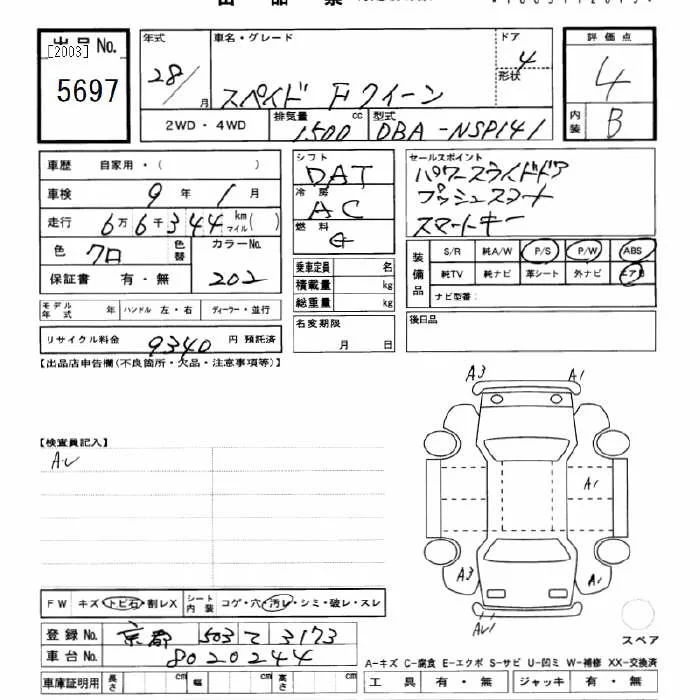 出品No.
[2003]
5697
年式
28/
月
車名・グレード
スペイド Fクイーン
ドア
4
形状
評価点
4
内装
B
2WD・4WD
排気量
1500 cc
型式
DBA-NSP141
車歴 自家用・( )
車検 9年 1月
走行 6万6千344 km マイル( )
色 クロ
色替
カラーNo.
202
保証書 有・無
モデル年式 年 ハンドル 左・右 ディーラー・並行
リサイクル料金 9340 円 預託済
シフト
DAT
冷房
AC
燃料
G
乗車定員 名
積載量 kg
総重量 kg
名変期限
月 日
セールスポイント
パワースライドドア
プッシュスタート
スマートキー
装備品
S/R 純A/W P/S P/W ABS
純TV 純ナビ 革シート 外ナビ エアB
ナビ型番:
後日品
【出品店申告欄(不良箇所・欠品・注意事項等)】
【検査員記入】
A3
A1
A1
A3
A1
FW キズ・トビ石・割レX
シート内装 コゲ・穴・汚レ・シミ・破レ・スレ
登録No. 京都 503 て 3173
車台No. 8020244
車庫証明用 長さ cm 幅 cm 高さ cm
スペア
A-キズ C-腐食 E-エクボ S-サビ U-凹ミ W-補修 XX-交換済
工具 有・無 ジャッキ 有・無